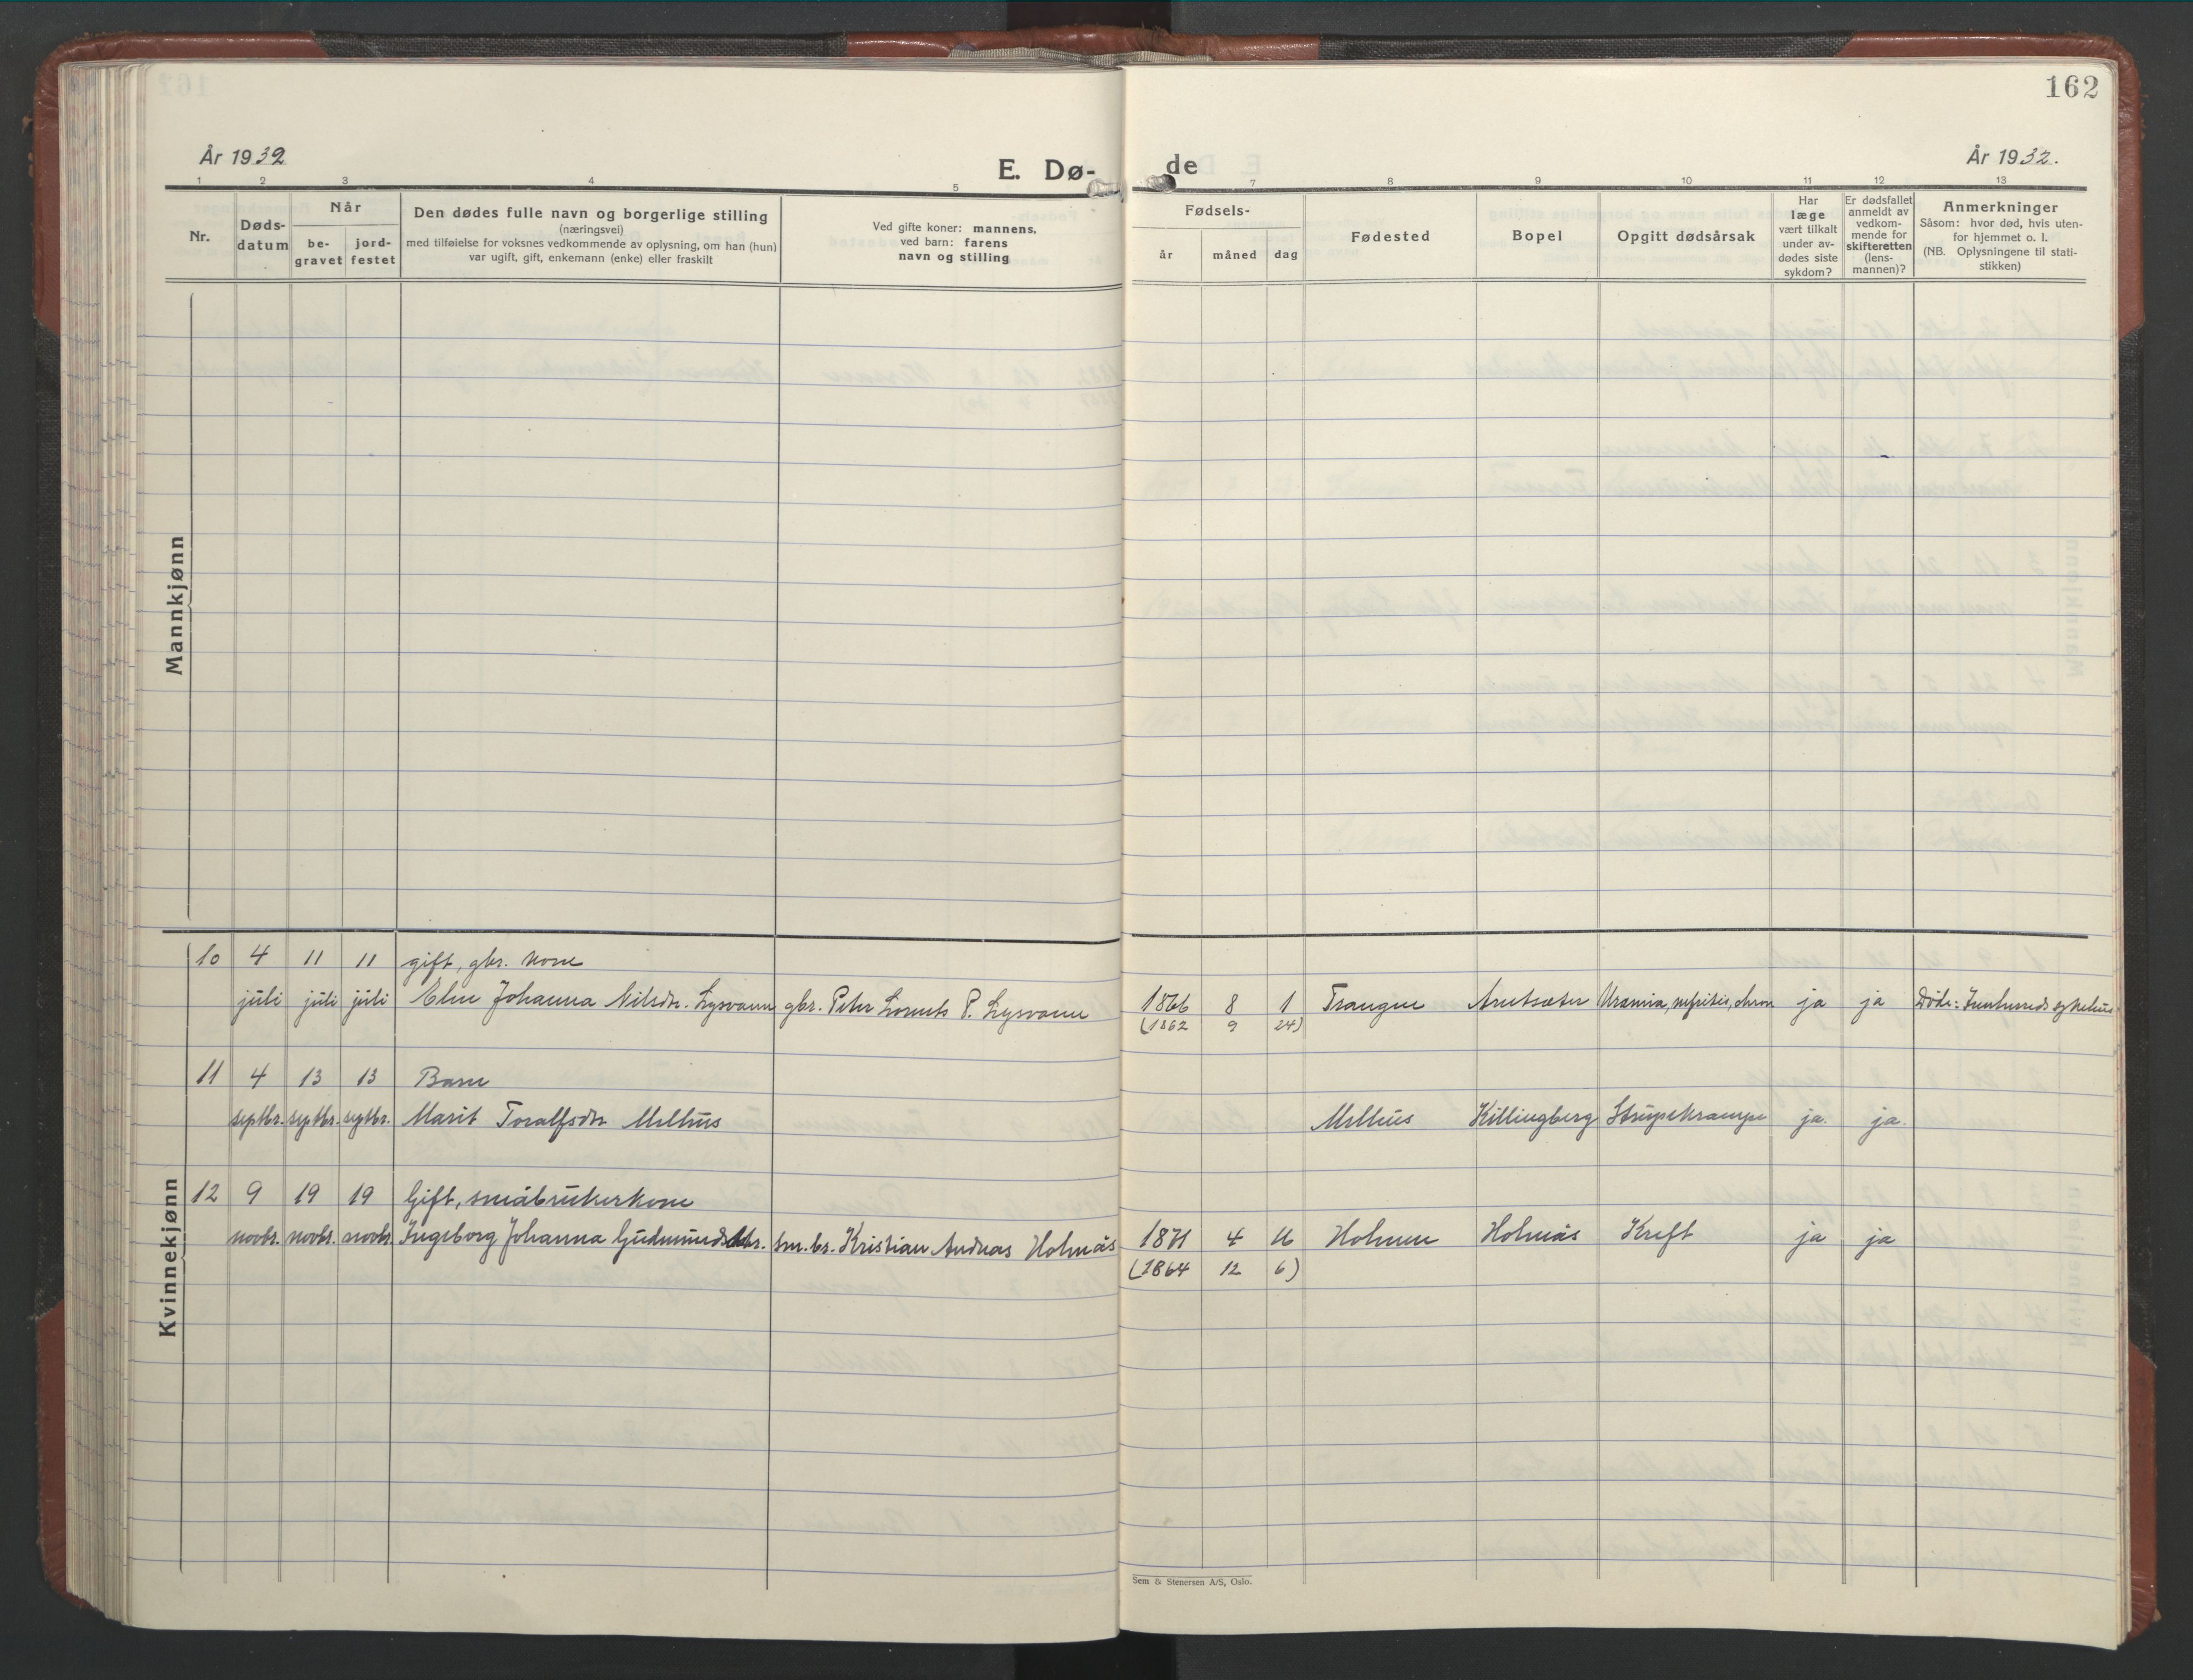 162
År 1932
E. Dø-
de
År 1932.
1 2 3 4 5 7 8 9 10 11 12 13
Nr.
Døds-
datum
Når
be-
gravet
jord-
festet
Den dødes fulle navn og borgerlige stilling
(næringsvei)
med tilføielse for voksnes vedkommende av oplysning, om han (hun)
var ugift, gift, enkemann (enke) eller fraskilt
Ved gifte koner: mannens,
ved barn: farens
navn og stilling
Fødsels-
år måned dag
Fødested
Bopel
Opgitt dødsårsak
Har
læge
vært tilkalt
under av-
dødes siste
sykdom?
Er dødsfallet
anmeldt av
vedkom-
mende for
skifteretten
(lens-
mannen)?
Anmerkninger
Såsom: hvor død, hvis uten-
for hjemmet o. l.
(NB. Oplysningene til stati-
stikken)
Mannkjønn
Kvinnekjønn
10 4 11 11 gift, gbr. kone
juli juli juli Elen Johanna Nilsdtr. Lysvann gbr. Peter Lorents P. Lysvann 1866 8 1 Trangen Arntsæter Uremia, nefritis, chron ja ja Døde: Innherreds sykehus
(1862 9 24)
11 4 13 13 Barn
septbr. septbr. septbr. Marit Toralfsdtr Melhus Melhus Killingberg Strupekrampe ja. ja.
12 9 19 19 Gift, småbrukerkone
novbr. novbr. novbr. Ingeborg Johanna Gudmundsdtr. sm.br. Kristian Andreas Holmås 1871 4 16 Holmen Holmås Kreft ja ja
(1864 12 6)
Sem & Stenersen A/S, Oslo.